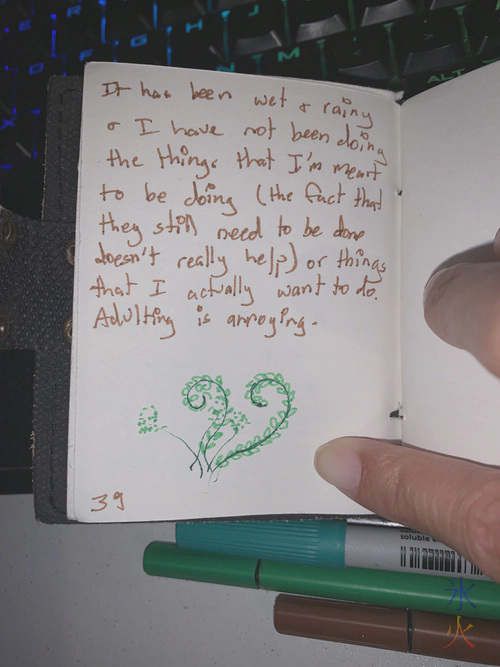 It has been wet & rainy
& I have not been doing
the things that I'm meant
to be doing (the fact that
they still need to be done
doesn't really help) or things
that I actually want to do.
Adulting is annoying.
39
soluble
ALT
N
M
氷
火